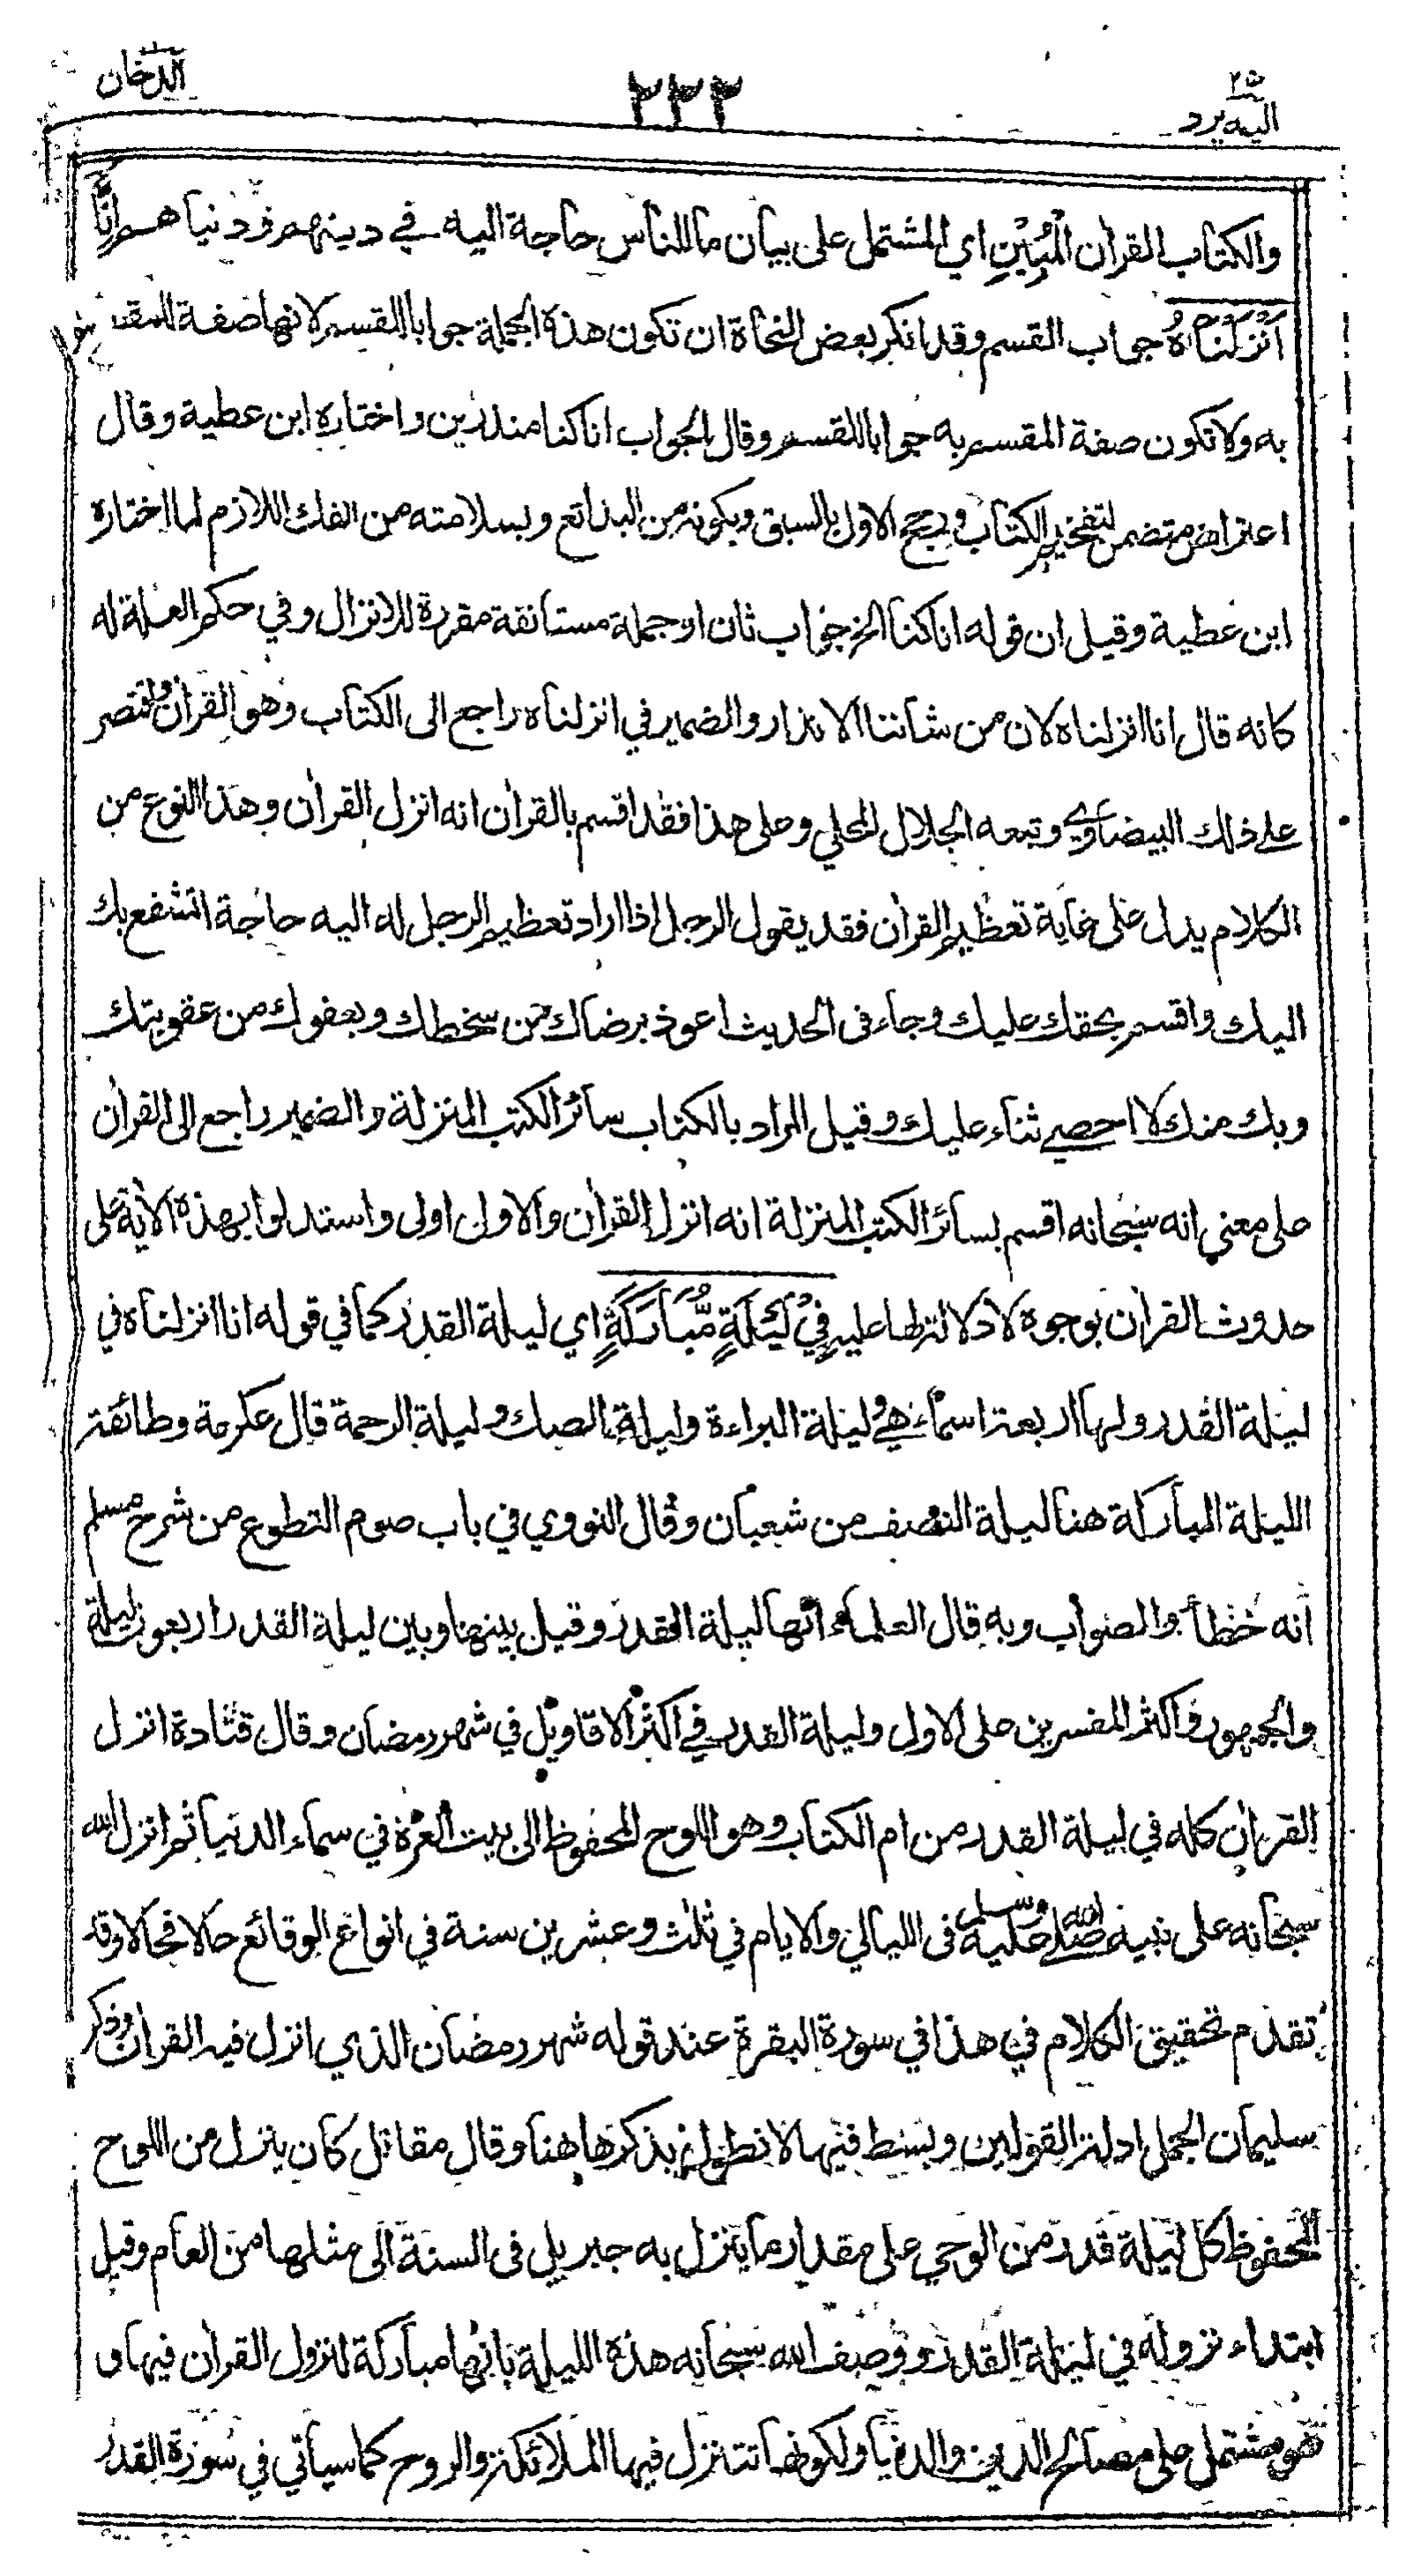 ٢٥
اليه يرد
٢٣٣
الدخان
والكتاب القرآن المُبِيْنِ اي المشتمل على بيان ما للناس حاجة اليه في دينهم ودنياهم اِنَّا
اَنْزَلْنَاهُ جواب القسم وقد انكر بعض النحاة ان تكون هذه الجملة جوابا للقسم لانها صفة للمقسم
به ولا تكون صفة المقسم به جوابا للقسم وقال الجواب انا كنا منذرين واختاره ابن عطية وقال
اعتراض متضمن لتفخيم الكتاب ورجح الاول بالسبق وبكونه من البدائع وبسلامته من الفك اللازم لما اختاره
ابن عطية وقيل ان قوله انا كنا الخ جواب ثان او جملة مستانفة مقررة للانزال وفي حكم العلة له
كانه قال انا انزلناه لان من شاننا الانذار والضمير في انزلناه راجع الى الكتاب وهو القرآن واقتصر
على ذلك البيضاوي وتبعه الجلال المحلي وعلى هذا فقد اقسم بالقرآن انه انزل القرآن وهذا النوع من
الكلام يدل على غاية تعظيم القرآن فقد يقول الرجل اذا اراد تعظيم الرجل له اليه حاجة اتشفع بك
اليك واقسم بحقك عليك وجاء في الحديث اعوذ برضاك من سخطك وبعفوك من عقوبتك
وبك منك لا احصي ثناء عليك وقيل المراد بالكتاب سائر الكتب المنزلة والضمير راجع الى القرآن
على معنى انه سبحانه اقسم بسائر الكتب المنزلة انه انزل القرآن والاول اولى واستدلوا بهذه الآية على
حدوث القرآن بوجوه لا دلالة لها عليه فِيْ لَيْلَةٍ مُّبَارَكَةٍ اي ليلة القدر كما في قوله انا انزلناه في
ليلة القدر ولها اربعة اسماء هي وليلة البراءة وليلة الصك وليلة الرحمة قال عكرمة وطائفة
الليلة المباركة هنا ليلة النصف من شعبان وقال النووي في باب صوم التطوع من شرح مسلم
انه خطأ والصواب وبه قال العلماء انها ليلة القدر وقيل بينها وبين ليلة القدر اربعون ليلة
والجمهور واكثر المفسرين على الاول وليلة القدر في اكثر الاقاويل في شهر رمضان وقال قتادة انزل
القرآن كله في ليلة القدر من ام الكتاب وهو اللوح المحفوظ الى بيت العزة في سماء الدنيا ثم انزل الله
سبحانه على نبيه صلى الله عليه وسلم في الليالي والايام في ثلث وعشرين سنة في انواع الوقائع حالا فحالا وقد
تقدم تحقيق الكلام في هذا في سورة البقرة عند قوله شهر رمضان الذي انزل فيه القرآن وذكر
سليمان الجمل ادلة القولين وبسط فيها لا نطول بذكرها هنا وقال مقاتل كان ينزل من اللوح
المحفوظ كل ليلة قدر من الوحي على مقدار ما ينزل به جبريل في السنة الى مثلها من العام وقيل
ابتداء نزوله في ليلة القدر ووصف الله سبحانه هذه الليلة بانها مباركة لنزول القرآن فيها و
هو مشتمل على مصالح الدين والدنيا ولكونها تتنزل فيها الملائكة والروح كما سيأتي في سورة القدر